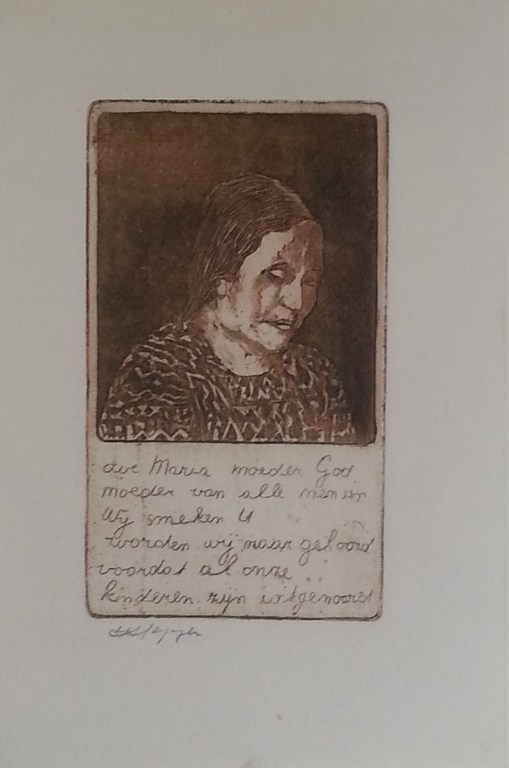 ave Maria moeder God
moeder van alle mensen
Wy smeken U
worden wij maar gehoord
voordat al onze
kinderen zijn uitgemoord